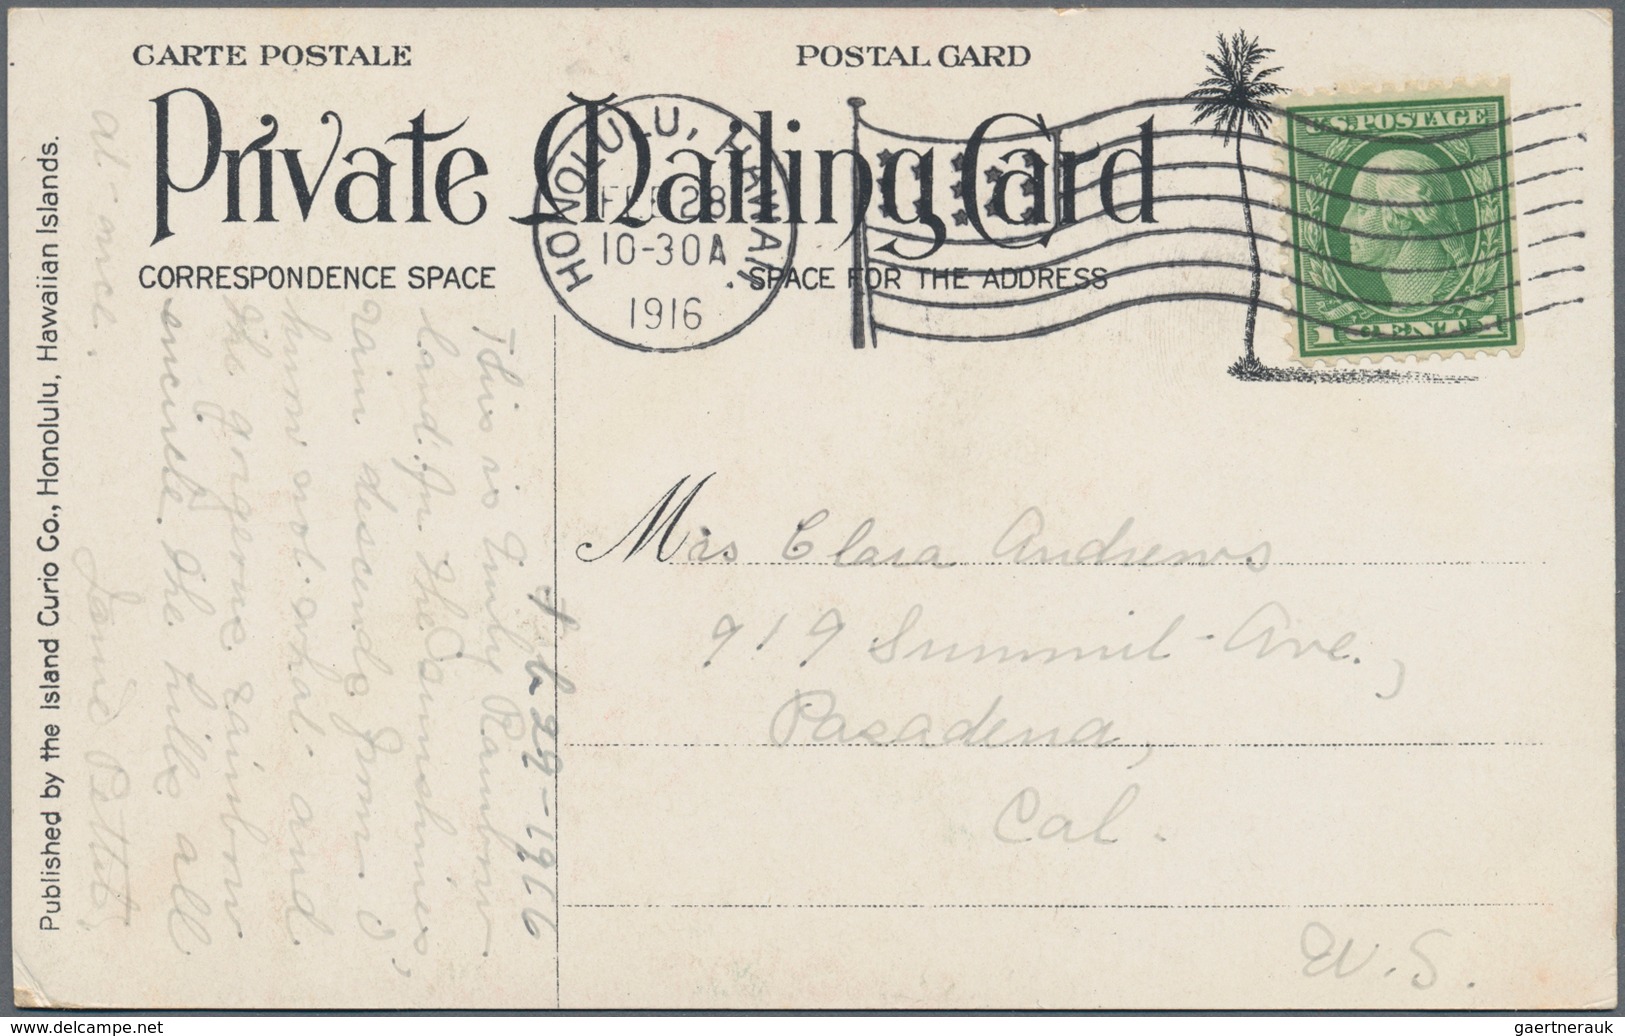 CARTE POSTALE
POSTAL CARD
Private Mailing Card
CORRESPONDENCE SPACE
SPACE FOR THE ADDRESS
HONOLULU, HAWAII.
FEB 28
10-30A
1916
U.S. POSTAGE
1 CENT 1
Feb 29-1916
This is truly Rainbow
land. In the sunshine,
rain descends from I
know not what and
the gorgeous rainbow
encircle the hills all
at once.
Pettit,
Mrs Clara Andrews
919 Summit Ave.,
Pasadena,
Cal.
U.S.
Published by the Island Curio Co., Honolulu, Hawaiian Islands.
www.delcampe.net
gaertnerauk